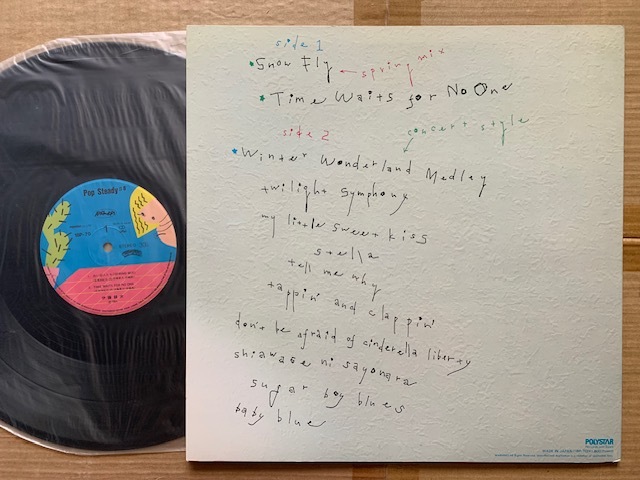 side 1
Snow Fly
spring mix
Time Waits for No One
side 2
concert style
Winter Wonderland Medley
twilight symphony
my little sweet kiss
stella
tell me why
tappin' and clappin'
don't be afraid of cinderella liberty
shiawase ni sayonara
sugar boy blues
baby blue
Pop Steady
1
POLYSTAR
MADE IN JAPAN